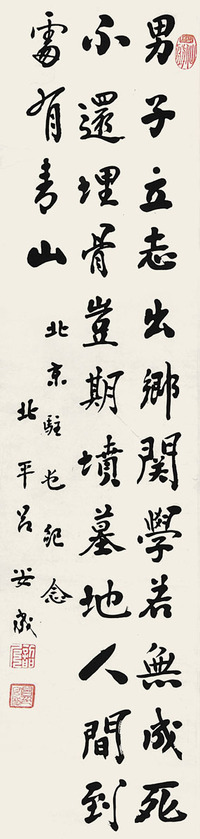 男子立志出鄉関學若無成死
不還埋骨豈期墳墓地人間到
處有青山
北京駐屯紀念
北平呂